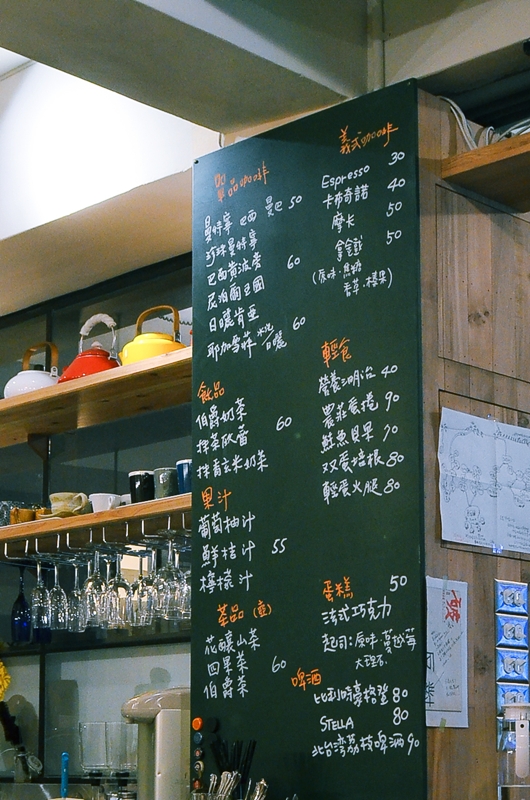 單品咖啡
曼特寧 巴西 曼巴 50
珍珠曼特寧
巴西黃波旁 60
尼泊爾
日曬肯亞
耶加雪菲 水洗 日曬 60
飲品
伯爵奶茶
抹茶欧蕾 60
抹香玄米奶茶
果汁
葡萄柚汁
鮮桔汁 55
檸檬汁
茶品(壺)
花釀山茶
四果茶 60
伯爵茶
義式咖啡
Espresso 30
卡布奇諾 40
摩卡 50
拿鐵 50
(原味.焦糖
香草.榛果)
輕食
營養三明治 40
農莊蛋捲 90
鮭魚貝果 70
双蛋培根 80
輕蛋火腿 80
蛋糕 50
法式巧克力
起司:原味.蔓越莓
大理石.
啤酒
比利時豪格登 80
STELLA 80
北台湾荔枝啤酒 90
破